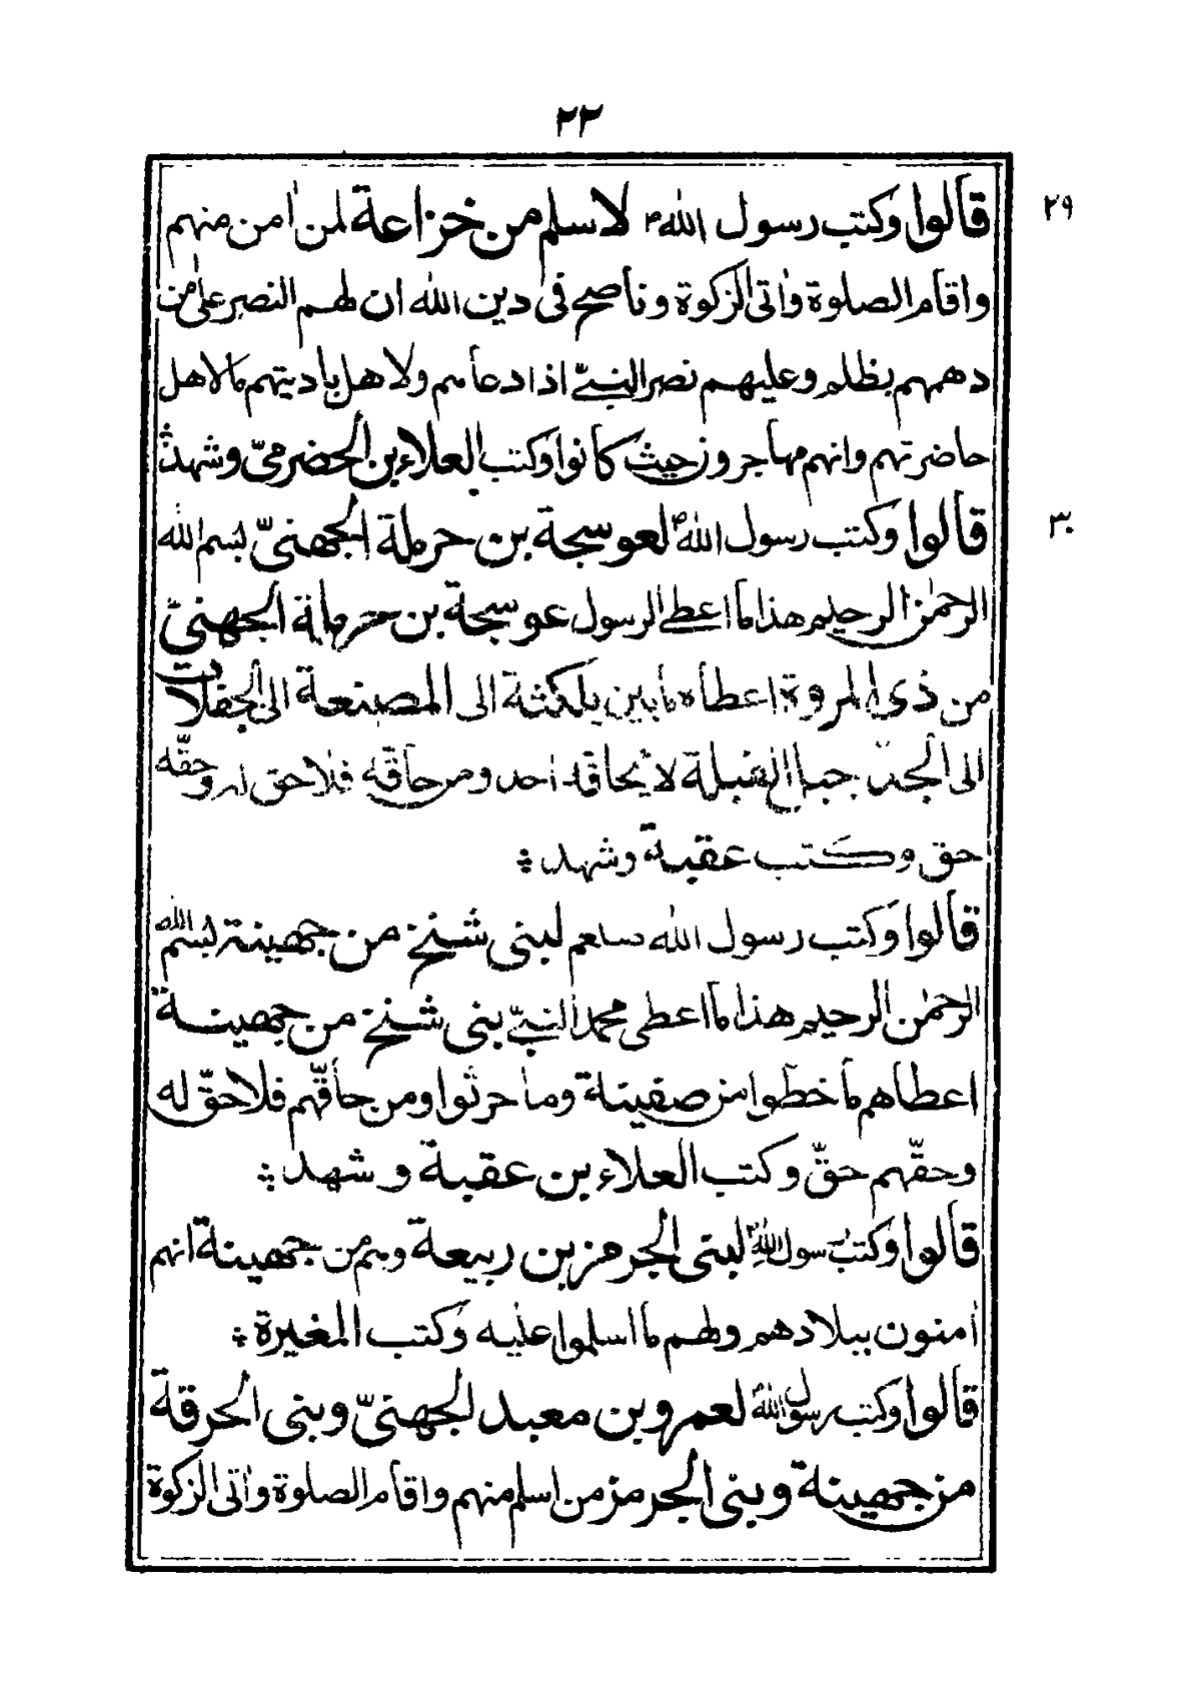 ٢٢
٢٩
قالوا وكتب رسول الله م لاسلم من خزاعة لمن اٰمن منهم
واقام الصلوة واٰتى الزكوة وناصح فى دين الله ان لهم النصر على من
دهمهم بظلم وعليهم نصر النبىّ اذا دعاهم ولاهل باديتهم ما لاهل
حاضرتهم وانهم مهاجرون حيث كانوا وكتب العلاء بن الحضرمىّ وشهد
٣٠
قالوا وكتب رسول الله ص لعوسجة بن حرملة الجهنىّ بسم الله
الرحمٰن الرحيم هذا ما اعطى الرسول عوسجة بن حرملة الجهنىّ
من ذى المروة اعطاه ما بين بلكثة الى المصنعة الى الجفلات
الى الجدّ جبل القبلة لا يحاقه احد ومن حاقّه فلا حق له وحقّه
حق وكتب عقبة وشهد
قالوا وكتب رسول الله صلعم لبنى شنخ من جهينة بسم الله
الرحمٰن الرحيم هذا ما اعطى محمد النبىّ بنى شنخ من جهينة
اعطاهم ما خطوا من صفينة وما حرثوا ومن حاقّهم فلا حقّ له
وحقّهم حقّ وكتب العلاء بن عقبة وشهد
قالوا وكتب رسول الله لبنى الجرمز بن ربيعة وهم من جهينة انهم
اٰمنون ببلادهم ولهم ما اسلموا عليه وكتب المغيرة
قالوا وكتب رسول الله لعمرو بن معبد الجهنىّ وبنى الحرقة
من جهينة وبنى الجرمز من اسلم منهم واقام الصلوة واٰتى الزكوة